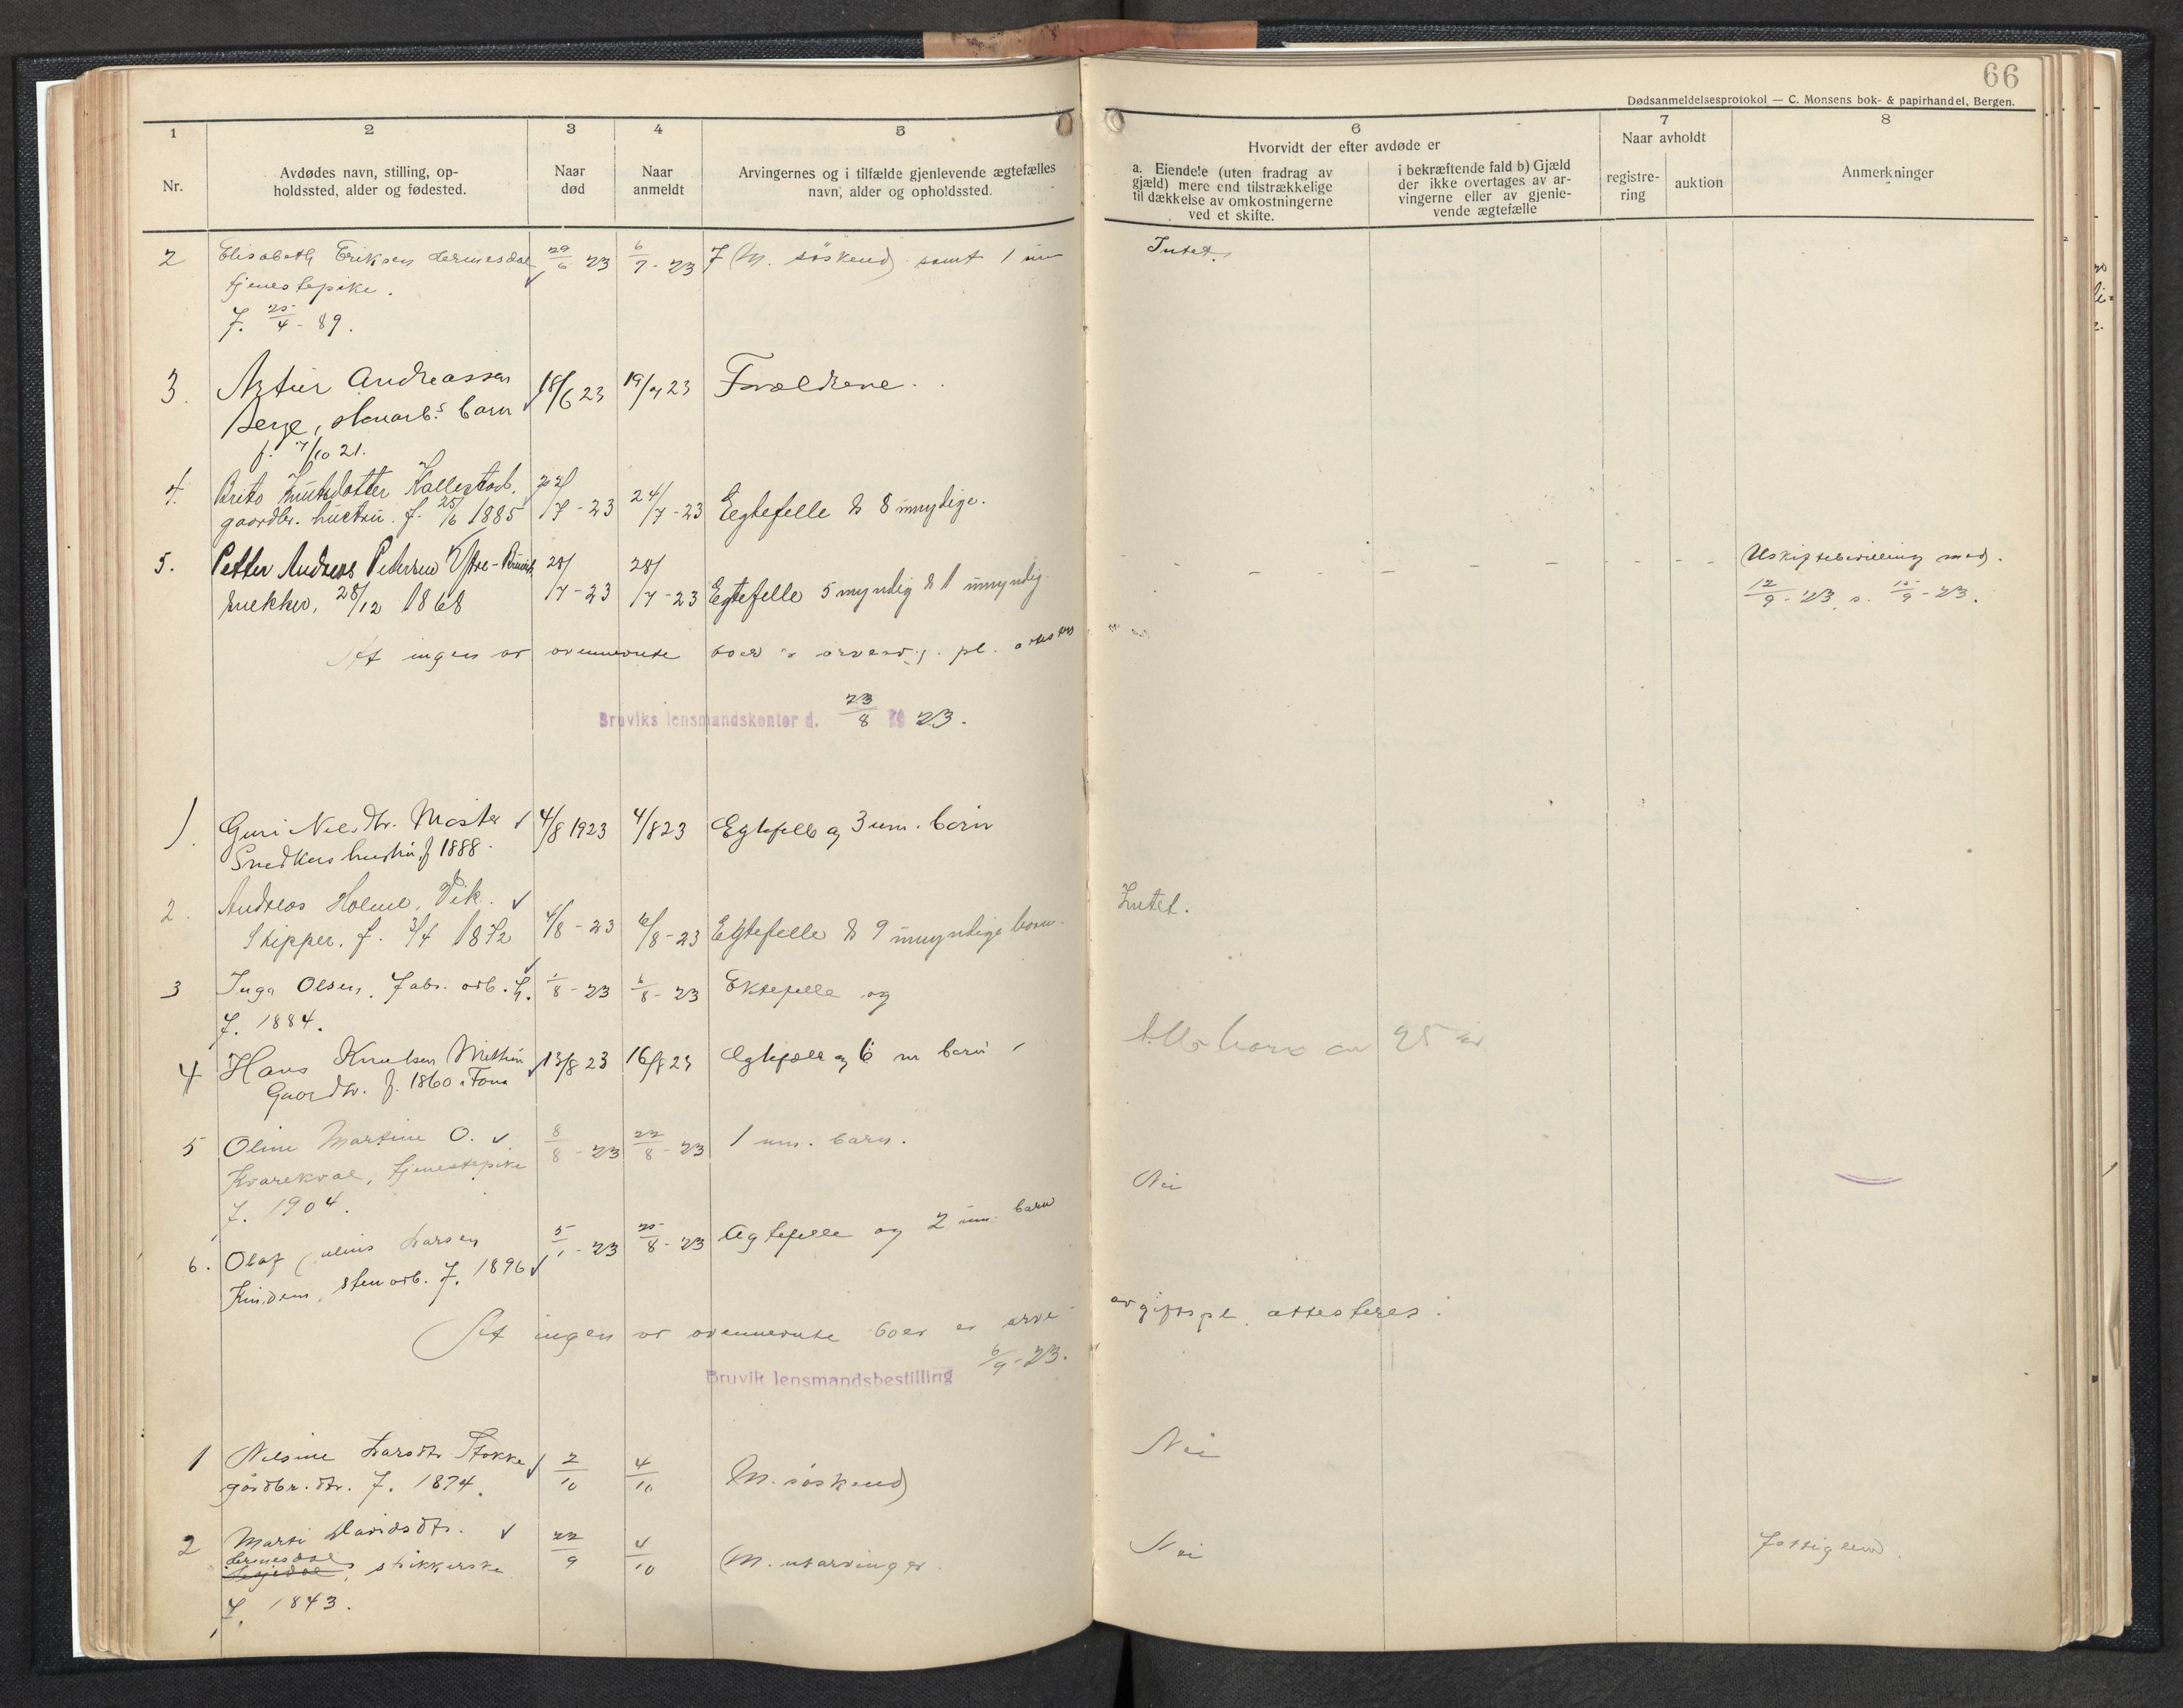 66
Dødsanmeldelsesprotokol — C. Monsens bok- & papirhandel, Bergen.
1 2 3 4 5 6 7 8
Nr.
Avdødes navn, stilling, op-
holdssted, alder og fødested.
Naar
død
Naar
anmeldt
Arvingernes og i tilfælde gjenlevende ægtefælles
navn, alder og opholdssted.
Hvorvidt der efter avdøde er
a. Eiendele (uten fradrag av
gjæld) mere end tilstrækkelige
til dækkelse av omkostningerne
ved et skifte.
i bekræftende fald b) Gjæld
der ikke overtages av ar-
vingerne eller av gjenle-
vende ægtefælle
Naar avholdt
registre-
ring
auktion
Anmerkninger
2 Elisabeth Eriksen 29/6 23 6/7-23 7 (M. søskend) samt 1 Intet.
tjenestepike.
f. 25/4-89.
3. Artur Andreassen 18/6 23 19/7 23 Forældrene.
Berge, stenarbs barn
f. 7/10 21.
4. Brita Knutsdotter Kallestad. 22/7-23 24/7-23 Egtefelle & 8 umydige.
gaardbr. hustru f. 25/6 1885
5. Petter Andreas Petersen Ytre-Bruvik 28/7-23 28/7-23 Egtefelle 5 myndig & 1 umyndig. - - - - - - - - Uskiftebevilling med.
snekker, 28/12 1868 12/9-23 s. 15/9-23.
At ingen av ovennevnte boer er arveavg. pl. attesteres
Bruviks lensmandskontor d. 23/8 19 23.
1. Guri Nilsdtr. Moster 4/8 1923 4/8 23 Egtefelle og 3 um. børn
Snedkers hustru f 1888.
2. Andreas Holme, Vik. 4/8-23 6/8-23 Egtefelle & 9 umyndige born. Intet.
Skipper. f. 3/4 1872
3 Inga Olsen, Fabr. arb. h. 1/8-23 6/8-23 Ektefelle og
f. 1884.
4 Hans Knutsen 13/8 23 16/8 23 Egtefælle og 6 m børn
Gaardbr. f. 1860 i Fana
5 Oline Martine O. 8/8-23 22/8-23 1 um. barn.
Kvarekval, tjenestepike Nei
f. 1904.
6. Olaf Julius Larsen 5/1-23 25/8-23 Ægtefelle og 2 um. barn
stenarb. f. 1896
At ingen av ovennevnte boer er arve-
avgiftspl. attesteres.
6/9-23.
Bruvik lensmandsbestilling
1 Nilsine Larsdtr Stokke 2/10 4/10 M. søskend Nei
gårdbr. dtr. f. 1874.
2 Marti Davidsdtr. 22/9 4/10 M. utarvinger. Nei Fattiglem.
strikkerske
f. 1843.